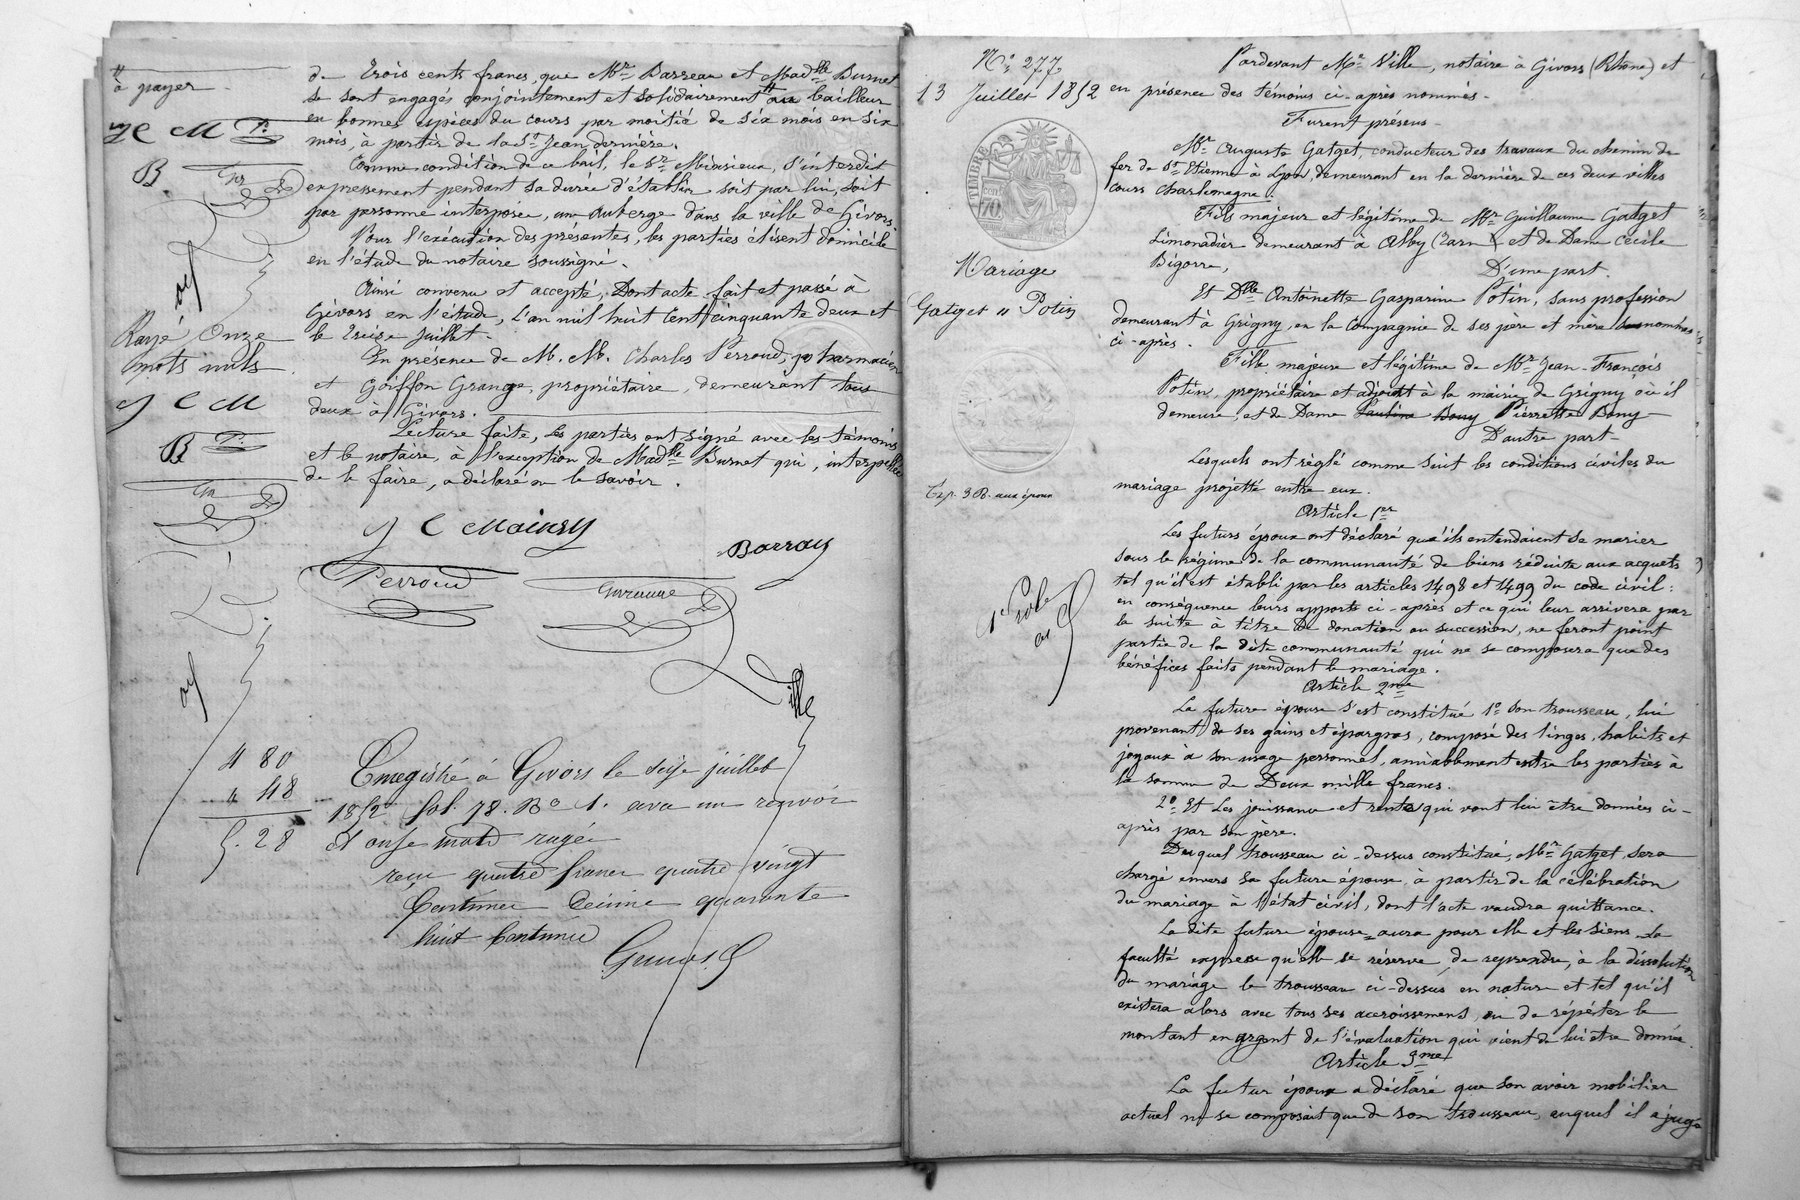 à payer
de Trois cents francs, que Mr. Barreau et Madlle Burnet
se sont engagés conjointement et solidairement au bailleur
en bonnes espèces du cours par moitié de six mois en six
mois, à partir de la St Jean dernière.
Comme condition de ce bail, le Sr. s'interdit
expressement pendant sa durée d'établir soit par lui, soit
par personne interposée, une auberge dans la ville de Givors.
Pour l'exécution des présentes, les parties élisent domicile
en l'étude du notaire soussigné.
Ainsi convenu et accepté, Dont acte fait et passé à
Givors en l'étude, L'an mil huit cent cinquante deux et
le treize juillet.
En présence de M. M. Charles Perroud, pharmacien
et Goiffon Grange, propriétaire, demeurant tous
deux à Givors.
Lecture faite, les parties ont signé avec les témoins
et le notaire, à l'exception de Madlle Burnet qui, interpellée
de le faire, a déclaré ne le savoir.
Rayé Onze
mots nuls
Y C M
B
Perroud
Ville
4 80
" 48
5. 28
Enregistré à Givors le seize juillet
1852 fol. 78. Ro 1. avec un renvoi
et onze mots rayés
reçu quatre francs quatre vingt
Centimes Décime quarante
huit Centimes
No. 277
13 Juillet 1852
TIMBRE
70
Mariage
Gatget " Potin
Exp. 3 R. aux époux
Pardevant Me Ville, notaire à Givors (Rhône) et
en présence des témoins ci-après nommés.
Furent présens
Mr. Auguste Gatget, conducteur des travaux du chemin de
fer de St. Etienne à Lyon, demeurant en la dernière de ces deux villes
cours Charlemagne.
Fils majeur et légitime de Mr. Guillaume Gatget
Limonadier demeurant à Alby (Tarn) et de Dame Cécile
Bigorre,
D'une part.
Et Dlle Antoinette Gasparine Potin, sans profession
demeurant à Grigny, en la Compagnie de ses père et mère nommés
ci-après.
Fille, majeure et légitime de Mr. Jean-François
Potin, propriétaire et adjoint à la mairie de Grigny où il
demeure, et de Dame Pierrette Bony
D'autre part.
Lesquels ont règlé comme suit les conditions civiles du
mariage projetté entre eux.
Article 1er
Les futurs époux ont déclaré qu'ils entendaient se marier
sous le Régime de la communauté de biens réduite aux acquets
tel qu'il est établi par les articles 1498 et 1499 du code civil:
en conséquence leurs apports ci-après et ce qui leur arrivera par
la suite à titre de donation ou succession, ne feront point
partie de la dite communauté qui ne se composera que des
bénéfices faits pendant le mariage.
Article 2me
La future épouse s'est constitué 1o. son trousseau, lui
provenant de ses gains et épargnes, composé des linges, habits et
joyaux à son usage personnel, amiablement entre les parties à
la somme de Deux mille francs.
2o. Et Les jouissance et rente qui vont lui être données ci-
après par son père.
Duquel trousseau ci-dessus constitué, Mr. Gatget sera
chargé envers sa future épouse, à partir de la célébration
du mariage à l'état civil, dont l'acte vaudra quittance.
La dite future épouse aura pour elle et les siens la
faculté expresse qu'elle se réserve de reprendre, à la dissolution
du mariage le trousseau ci-dessus en nature et tel qu'il
existera alors avec tous ses accroissemens, ou de répéter le
montant en argent de l'évaluation qui vient de lui être donnée.
Article 3me
Le futur époux a déclaré que son avoir mobilier
actuel ne se composait que de son trousseau, auquel il a jugé